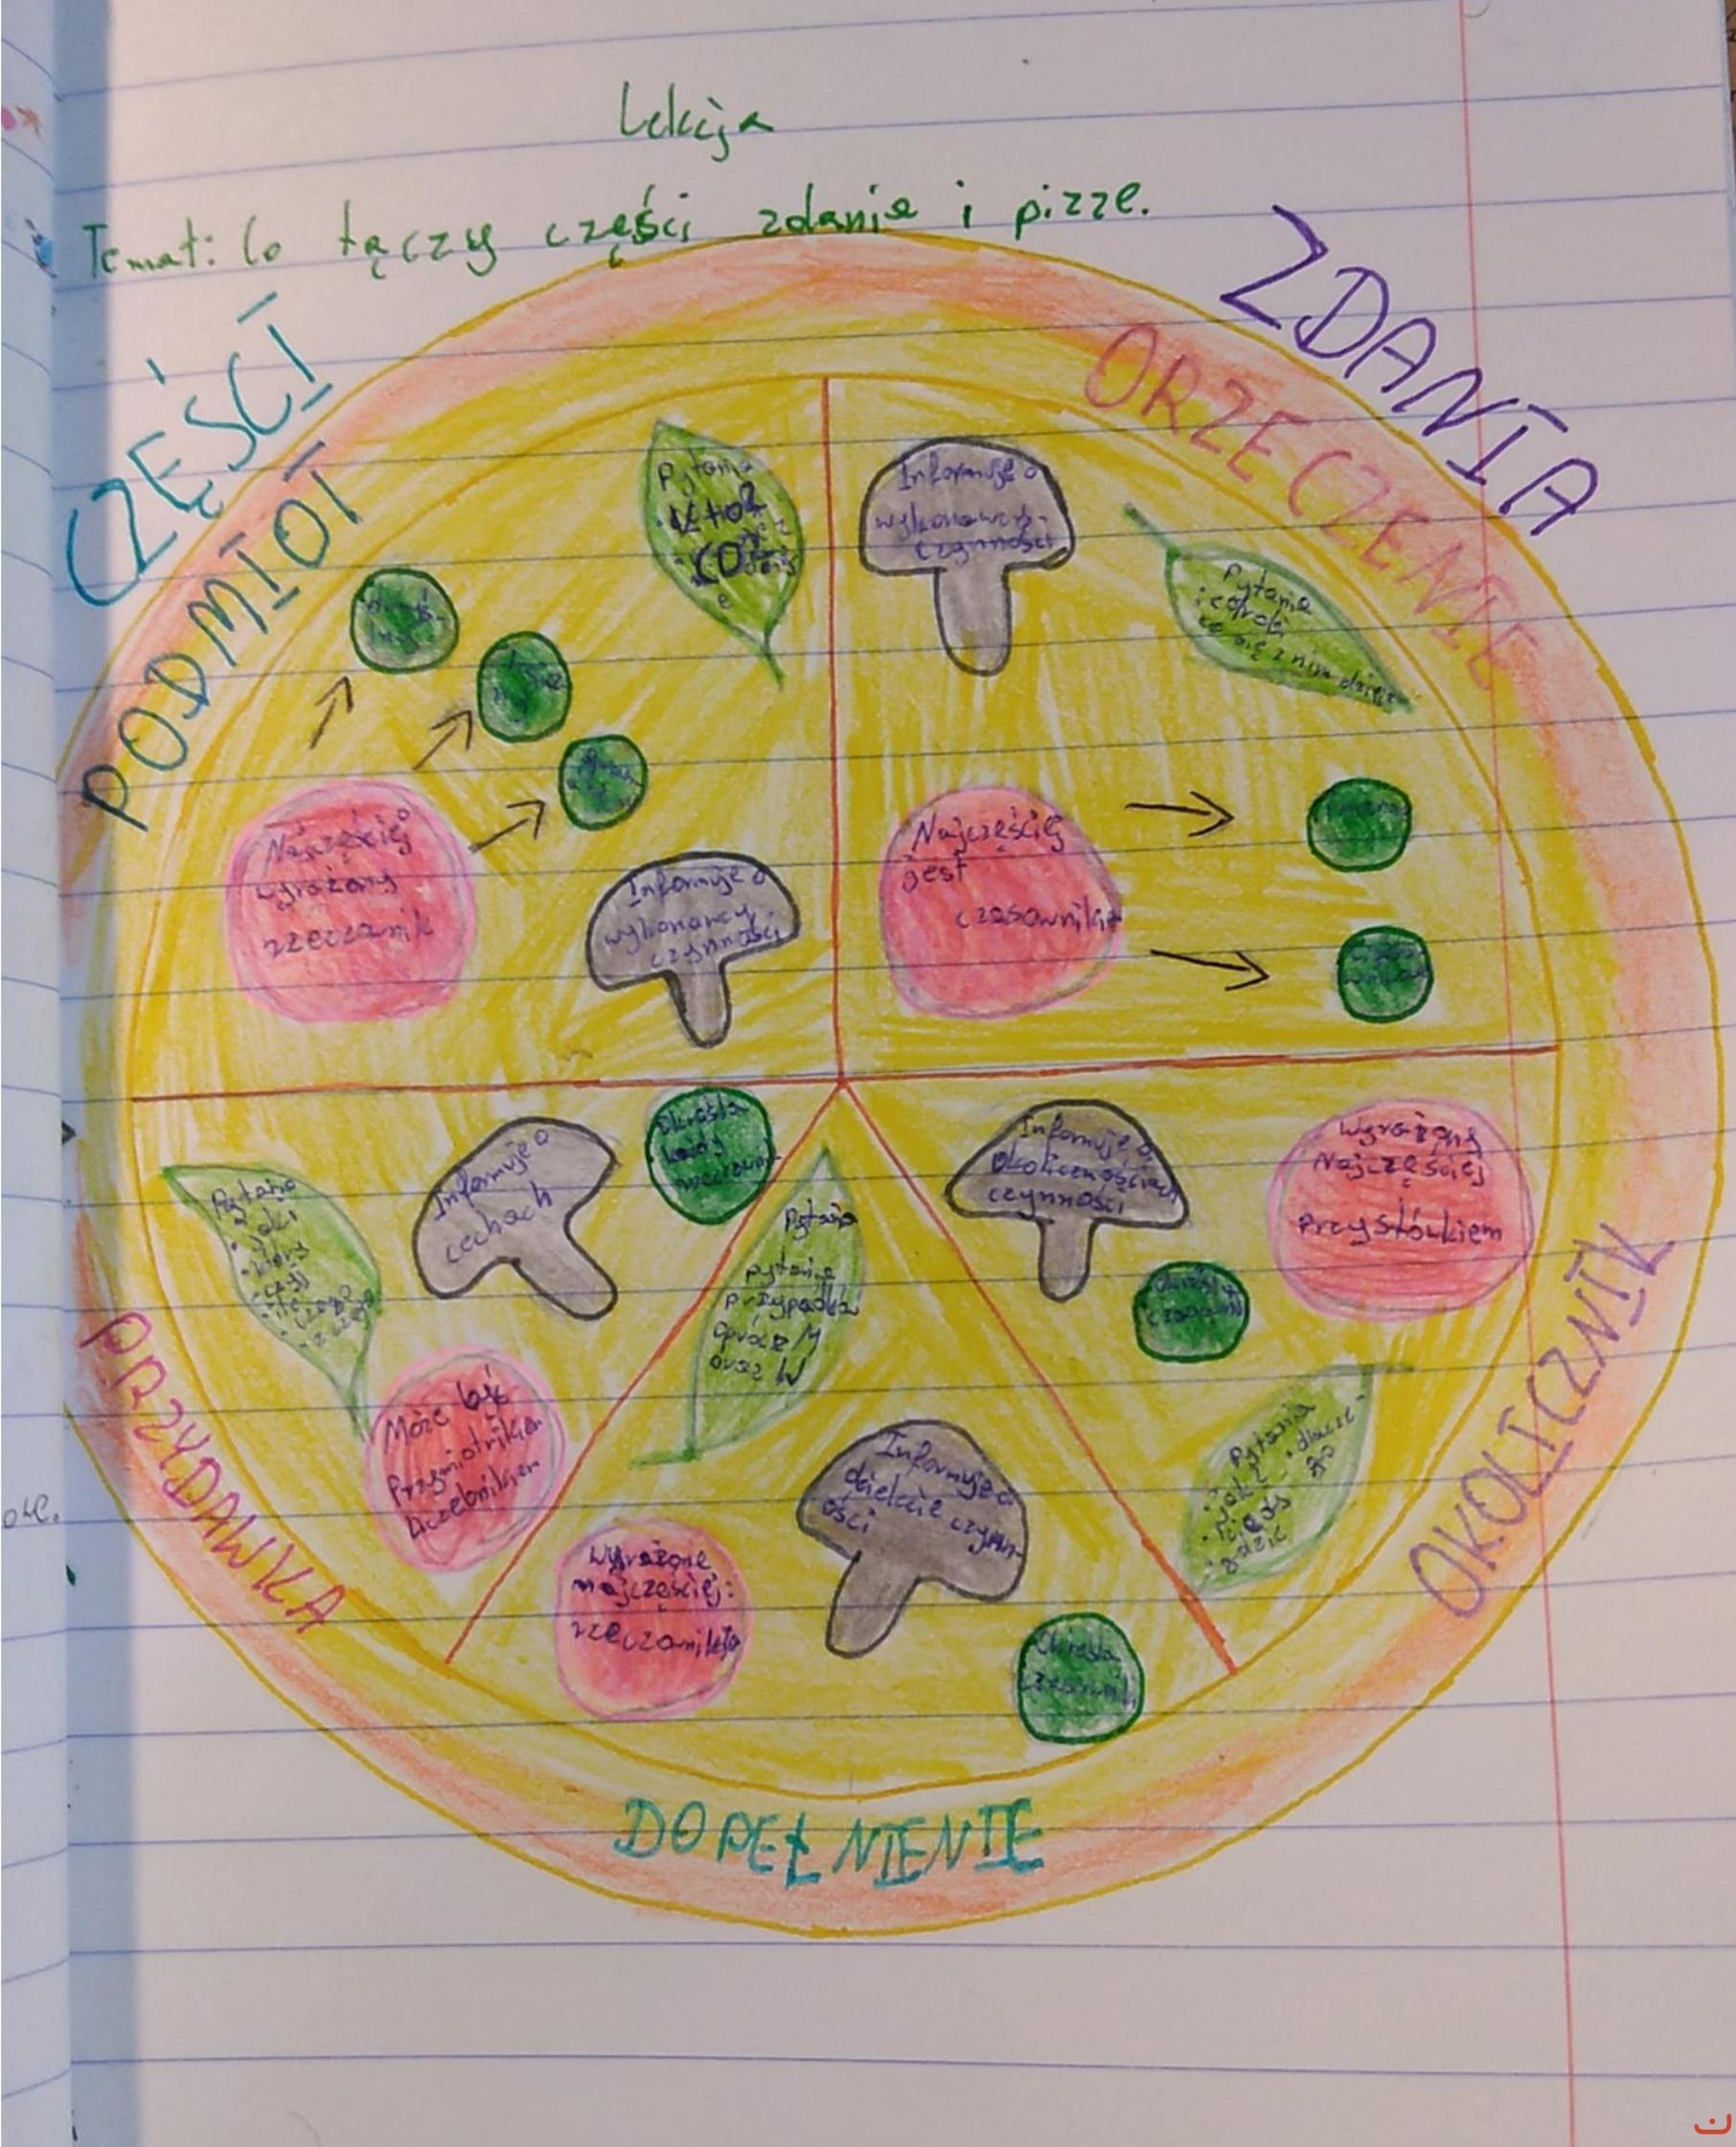 Lekcja
Temat: Co łączy części zdania i pizzę.
CZĘŚCI
ZDANIA
PODMIOT
Pytania
kto?
co
Najczęściej
wyrażany
rzeczownik
Informuje o
wykonawcy
czynności
ORZECZENIE
Informuje o
wykonawcy
czynności
Pytania
co robi
co się z nim dzieje
Najczęściej
jest
czasownikie
PRZYDAWKA
Pytania
jaki
który
czyj
Informuje o
cechach
Określa
Może być
Przymiotnikiem
Liczebnikiem
DOPEŁNIENIE
Pytania
pytania
przypadków
oprócz M
oraz W
Wyrażone
najczęściej:
rzeczownikie
Informuje o
obiekcie czynn-
ości
Określa
czasownik
OKOLICZNIK
Informuje o
okolicznościach
czynności
Wyrażany
Najczęściej
Przysłówkiem
Określa
czasownik
Pytania
jak
dlacze-
go
kiedy
gdzie